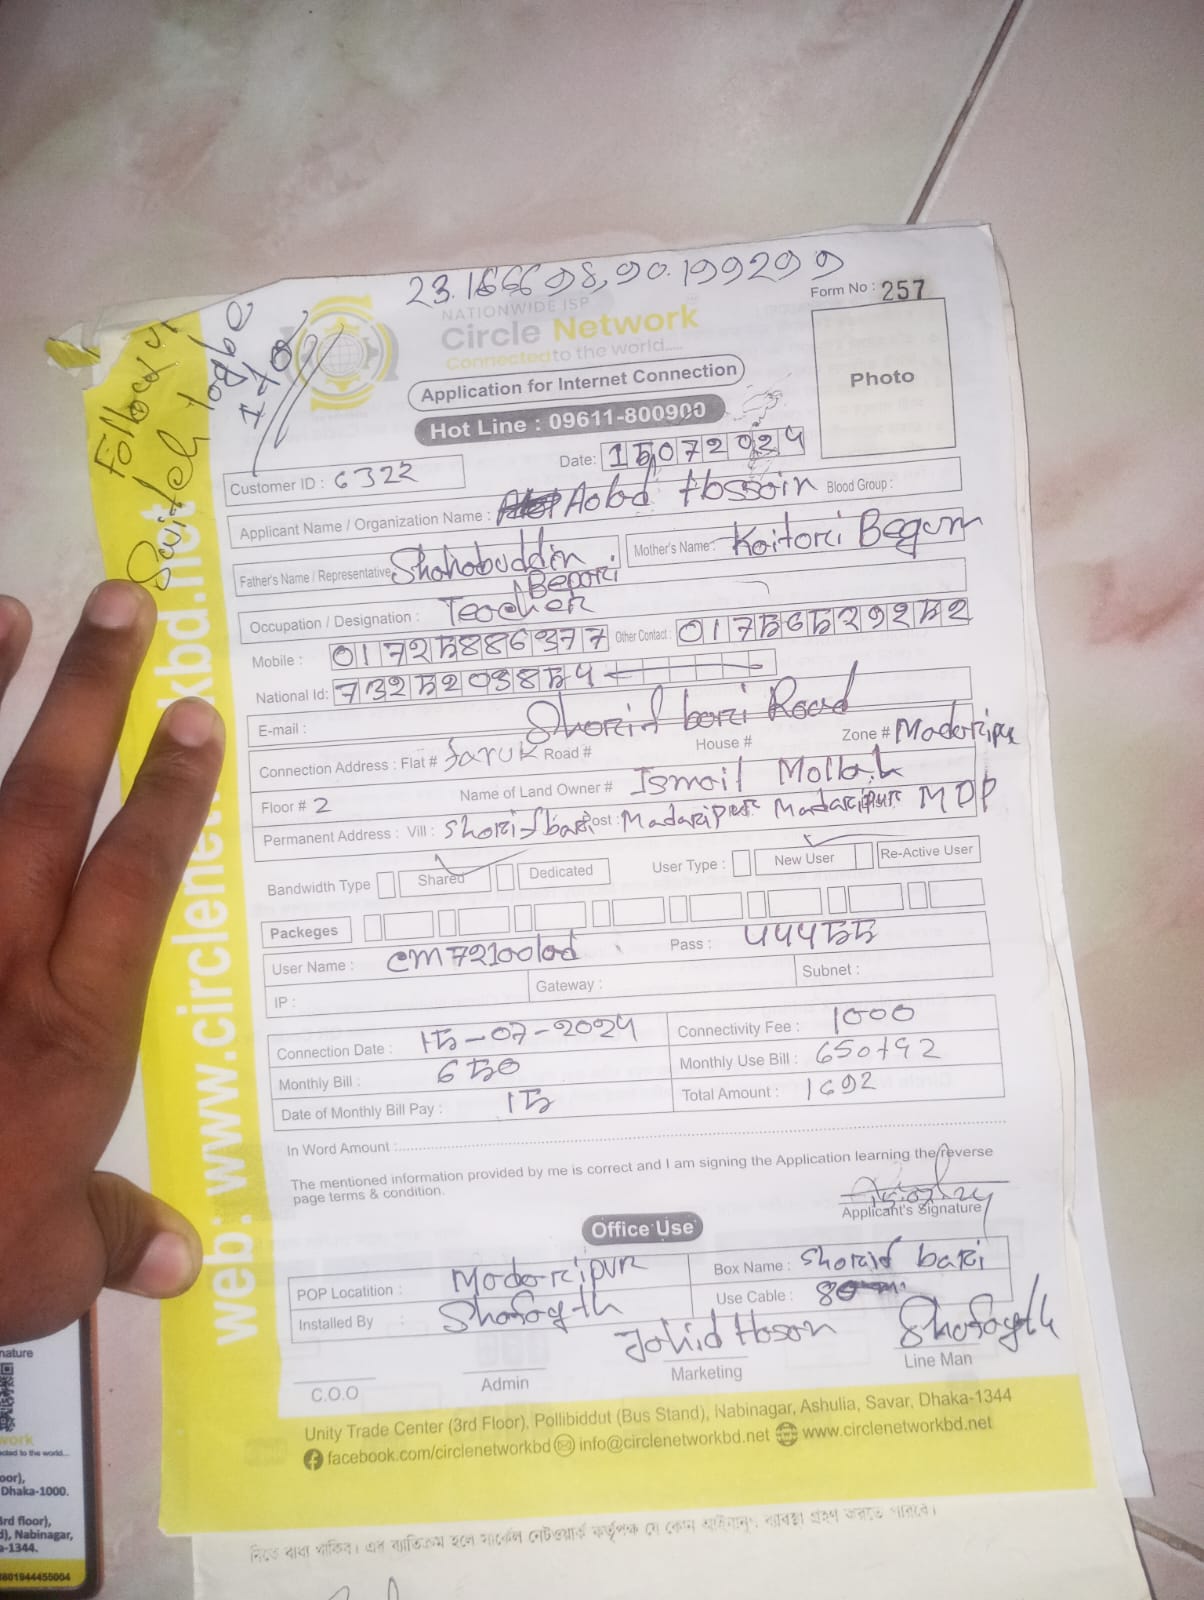 23.166698,90.199299
Form No : 257
NATIONWIDE ISP
Circle Network
Connected to the world.....
Photo
Application for Internet Connection
Hot Line : 09611-800900
Date: 15072024
Switch logbe
Customer ID : 6322
Applicant Name / Organization Name : Hossain Blood Group :
Father's Name / Representative Shahabuddin Bepari Mother's Name: Koitori Begum
Occupation / Designation : Teacher
Mobile : 01725886377 Other Contact : 01756529252
National Id: 7325203854
E-mail :
Sharif bari Road
Connection Address : Flat # faruk Road # House # Zone # Madaripur
Floor # 2 Name of Land Owner # Ismail Mollah
Permanent Address : Vill : Sharifbari Post : Madaripur Madaripur MDP
Bandwidth Type Shared Dedicated User Type : New User Re-Active User
Packeges
User Name : Pass : 44455
IP : Gateway : Subnet :
Connection Date : 15-07-2024 Connectivity Fee : 1000
Monthly Bill : 650 Monthly Use Bill : 650+42
Date of Monthly Bill Pay : 15 Total Amount : 1692
In Word Amount :
The mentioned information provided by me is correct and I am signing the Application learning the reverse
page terms & condition.
15.07.24
Applicant's Signature
Office Use
POP Locatition : Madaripur Box Name : Sharif bari
Installed By : Shafayth Use Cable :
Johid Hosan Shafayth
C.O.O Admin Marketing Line Man
Unity Trade Center (3rd Floor), Pollibiddut (Bus Stand), Nabinagar, Ashulia, Savar, Dhaka-1344
facebook.com/circlenetworkbd info@circlenetworkbd.net www.circlenetworkbd.net
web: www.circlenetworkbd.net
নিতে বাধ্য থাকিব। এর ব্যতিক্রম হলে সার্কেল নেটওয়ার্ক কর্তৃপক্ষ যে কোন আইনানুগ ব্যবস্থা গ্রহণ করতে পারিবে।
nature
work
cted to the world...
oor),
Dhaka-1000.
3rd floor),
d), Nabinagar,
a-1344.
8801944455004